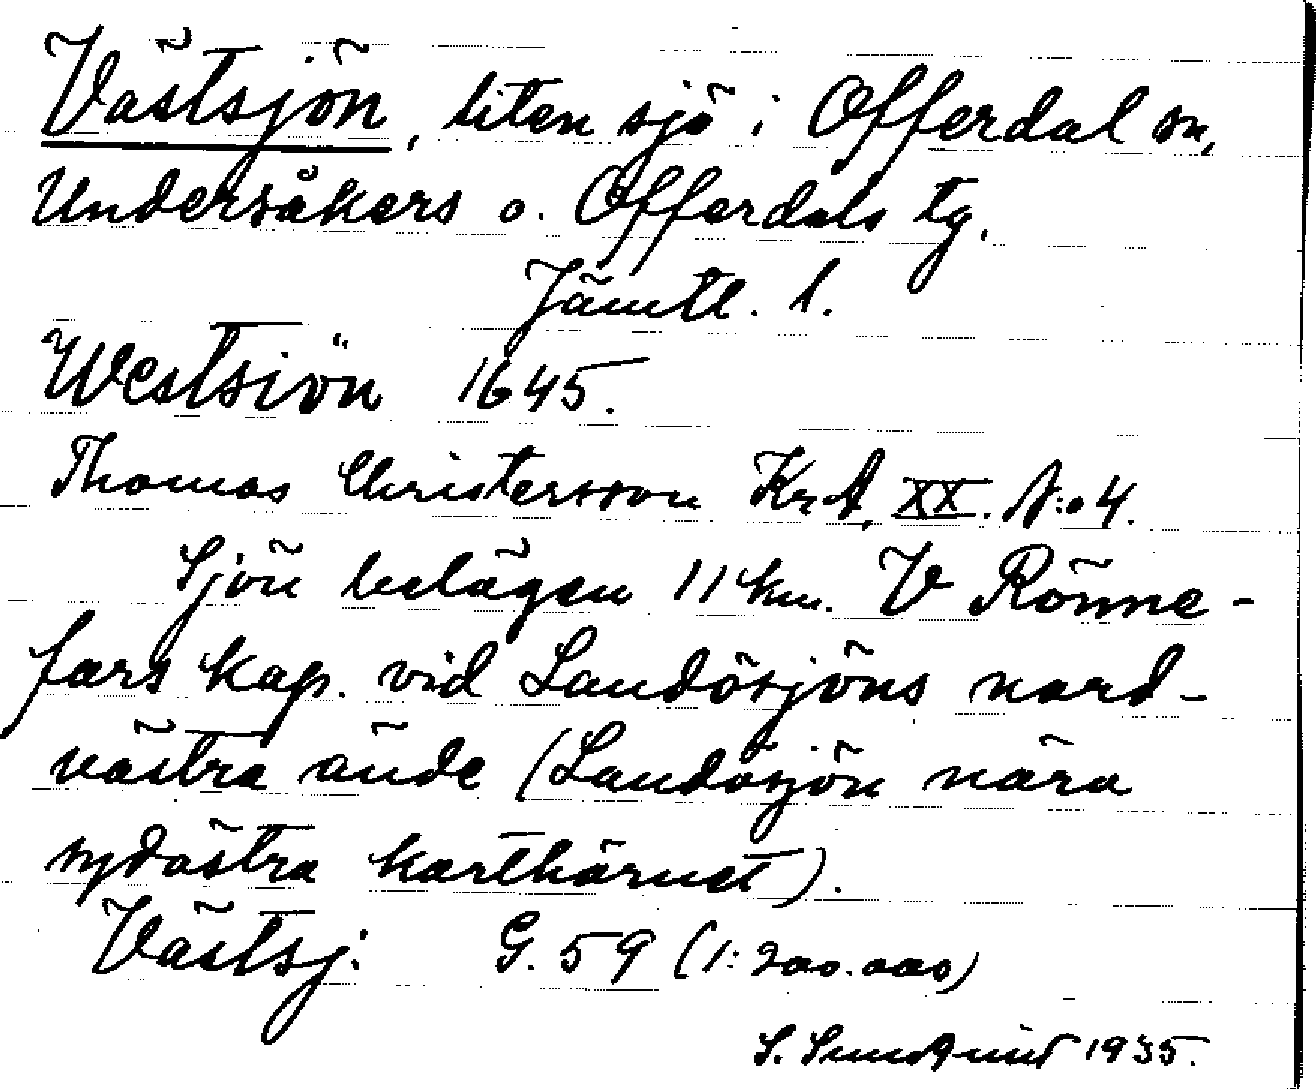 Västsjön, liten sjö i Offerdal sn,
Undersåkers o. Offerdals tg.
Jämtl. l.
Westsiön 1645.
Thomas Christersson KrA, XX. N:o 4.
Sjön belägen 11 km. V Rönne-
fors kap. vid Landösjöns nord-
västra ände (Landösjön nära
sydöstra karthörnet).
Västsj: G. 59 (1:200.000)
S. Sundqvist 1935.